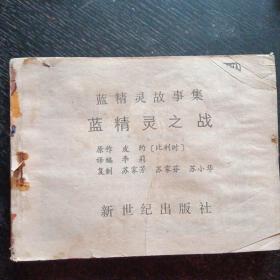 蓝精灵故事集
蓝精灵之战
原作 皮约〔比利时〕
译编 李莉
复制 苏家芳 苏家芬 苏小华
新世纪出版社